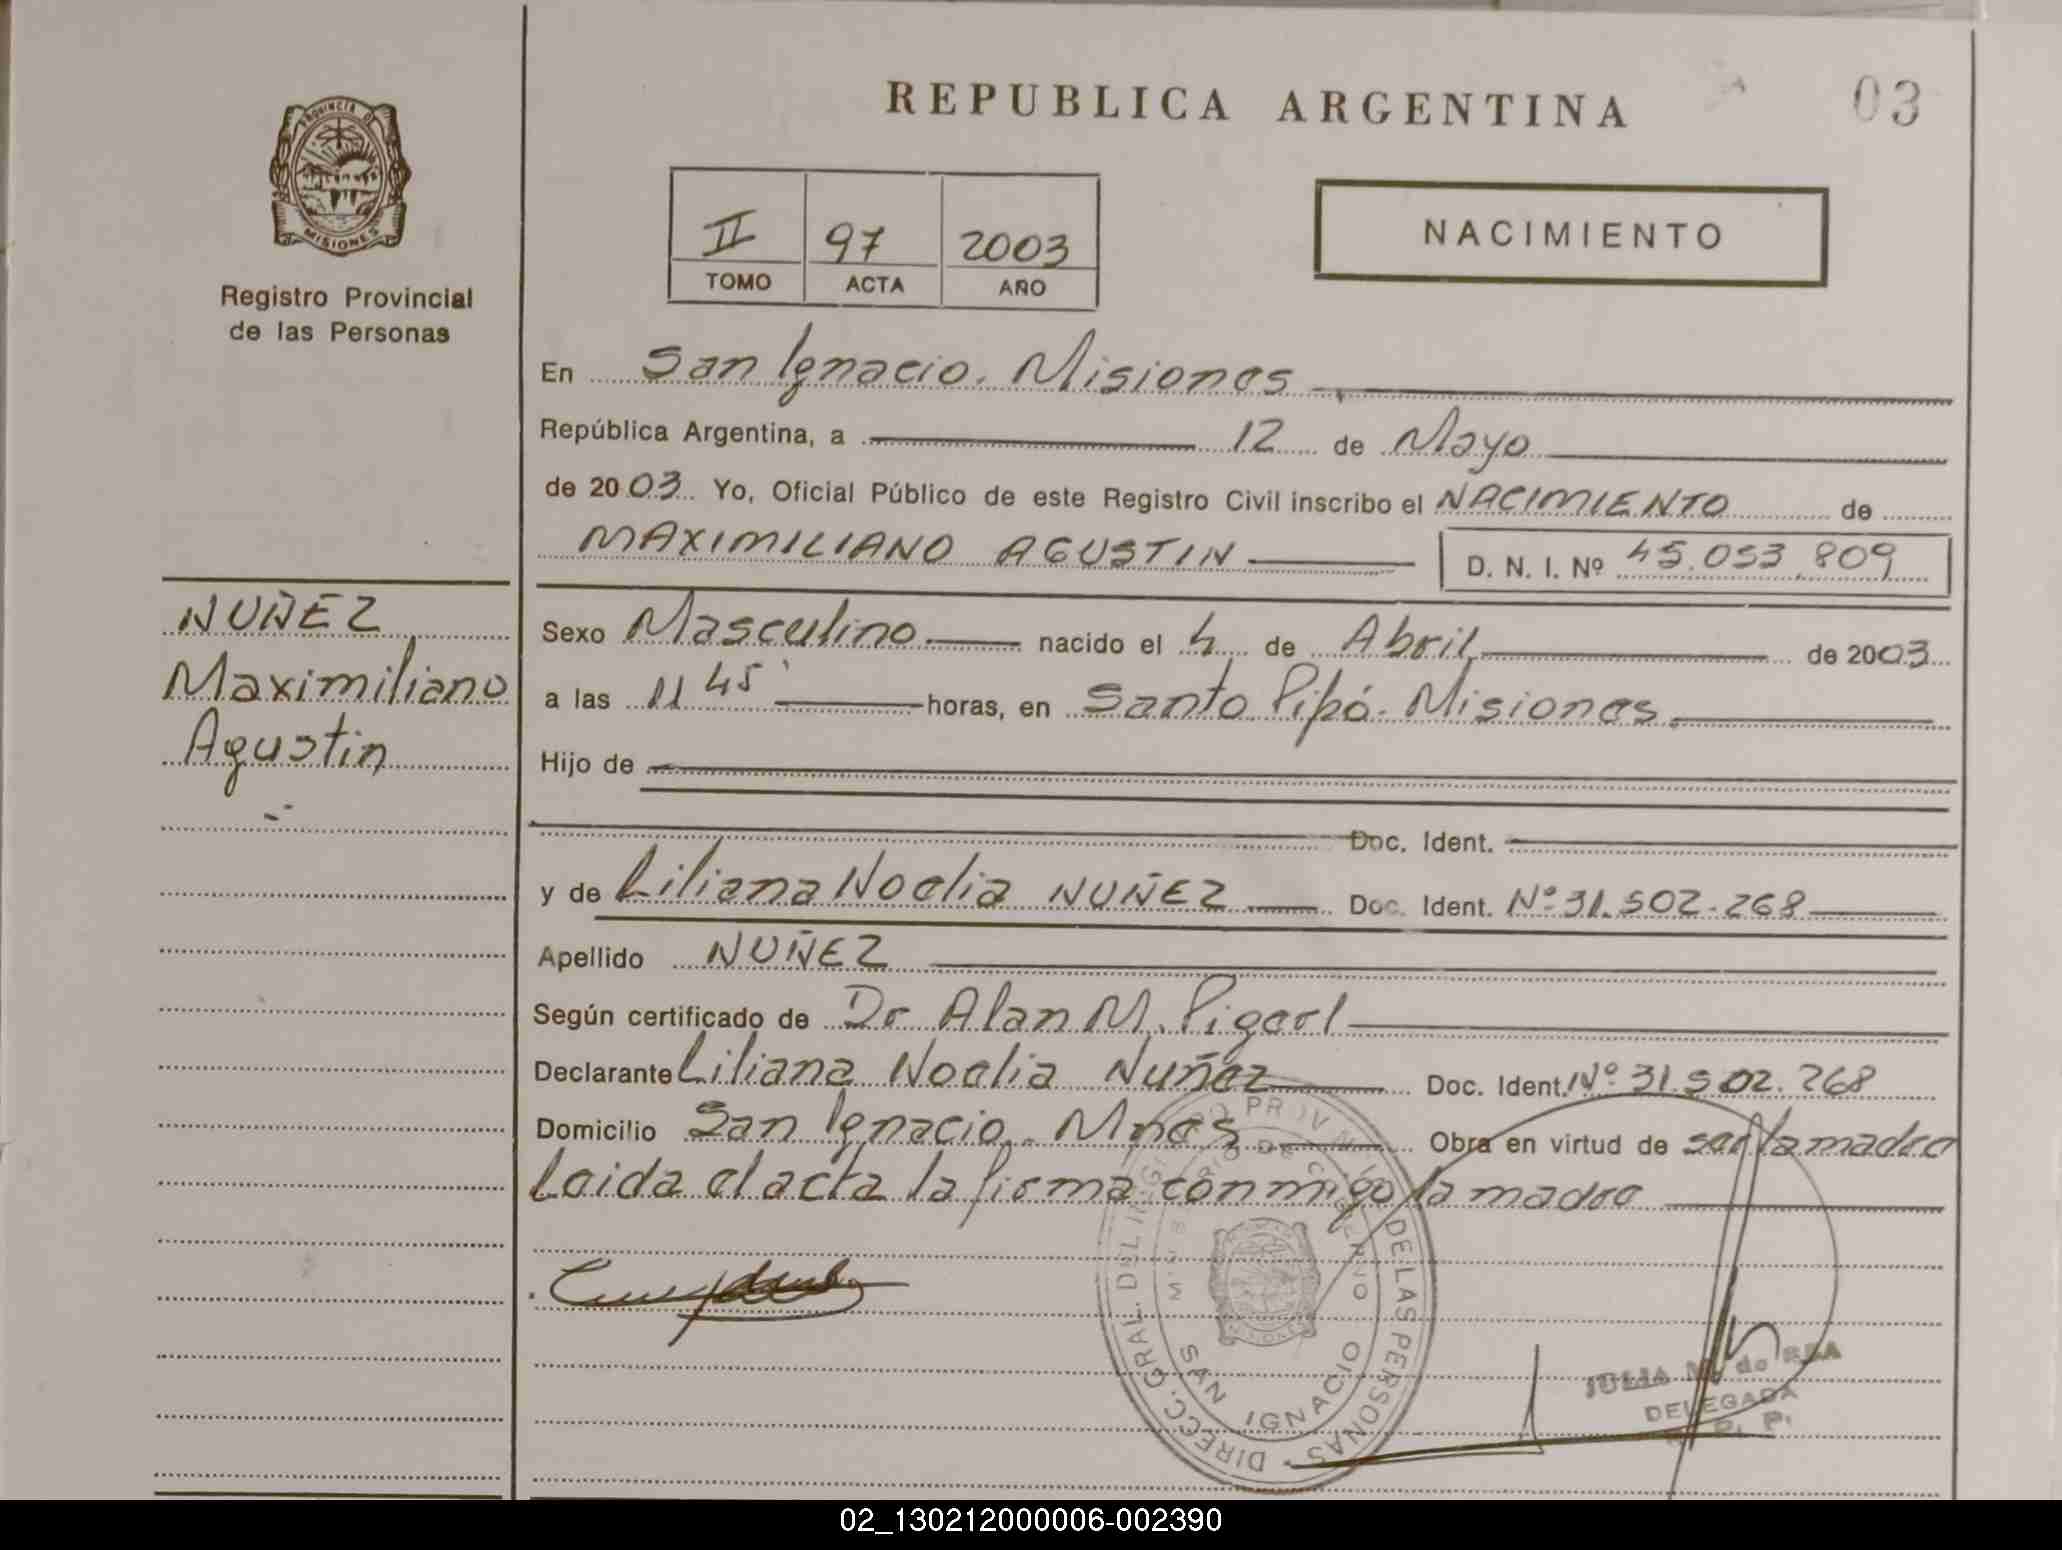 REPUBLICA ARGENTINA
03
PROVINCIA DE
MISIONES
Registro Provincial
de las Personas
II 97 2003
TOMO ACTA AÑO
NACIMIENTO
En San Ignacio. Misiones
República Argentina, a 12 de Mayo
de 2003 Yo, Oficial Público de este Registro Civil inscribo el NACIMIENTO de
MAXIMILIANO AGUSTIN D. N. I. Nº 45.053.809
NUÑEZ
Maximiliano
Agustin
Sexo Masculino nacido el 4 de Abril de 2003
a las 11 45' horas, en Santo Pipó. Misiones.
Hijo de
Doc. Ident.
y de Liliana Noelia NUÑEZ Doc. Ident. Nº 31.502.268
Apellido NUÑEZ
Según certificado de Dr Alan M.
Declarante Liliana Noelia Nuñez Doc. Ident. Nº 31.502.268
Domicilio San Ignacio. Mnes Obra en virtud de ser la madre
Leida el acta la firma conmigo la madre
DIRECC. GRAL. DEL REGISTRO PROVINCIAL DE LAS PERSONAS
MINISTERIO DE GOBIERNO
MISIONES
SAN IGNACIO
JULIA M. de REA
DELEGADA
R. P. P.
02_130212000006-002390